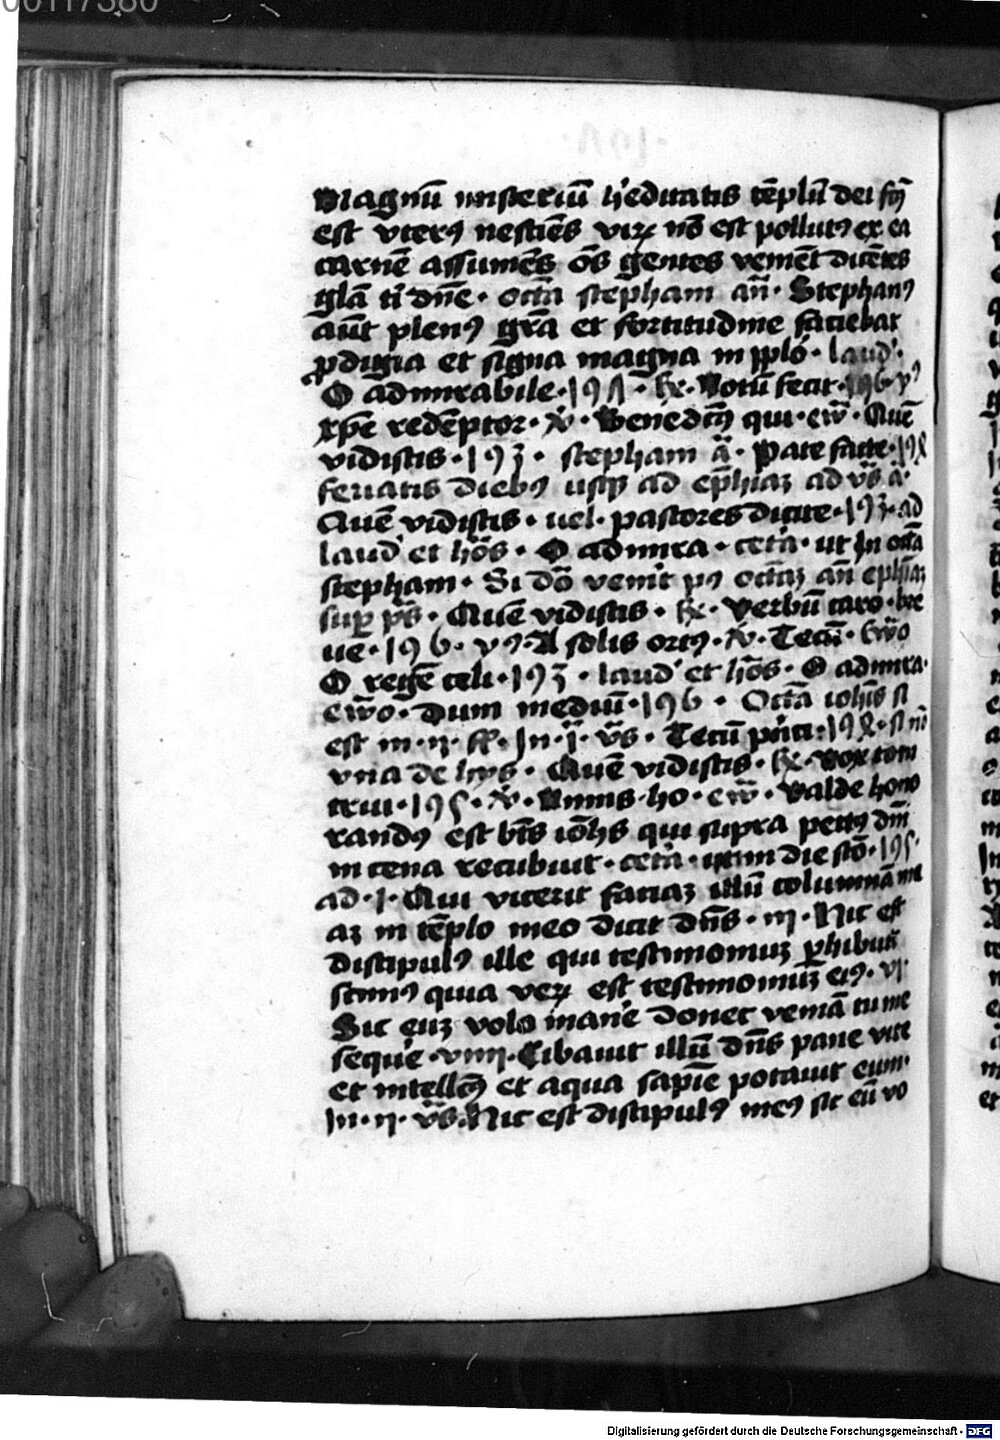 00117380
Magnū misteriū h'editatis tēplū dei fc̄ꝫ
est vterꝰ nesciēs viꝝ nō est pollutꝰ ex ea
carnē assumēs ōs gentes veniēt dicētes
gl̄a ti dn̄e · octā stephani an̄ · Stephanꝰ
aūt plenꝰ gr̄a et fortitudine faciebat
ꝓdigia et signa magna in pp̄lo · laud' ·
O admirabile · 191 · ꝶ · Notū fecit · 196 · yꝰ
xp̄e redēptor · ℣ · Benedictꝰ qui · ew̄ · Quē
vidistis · 193 · stephani ā · Pate facte · 198
feriatis diebꝰ usqꝫ ad ep̄hiaꝫ ad vs̄ ā ·
Quē vidistis · uel · pastores dicite · 193 · ad
laud' et hōs · O admira · cetā · ut In octā
stephani · Si dō venit pꝰ octaꝫ an̄ ephīaꝫ
sup̲ ps̄ · Quē vidistis · ꝶ · Verbū caro · bre
ue · 196 · yꝰ · A solis ortꝰ · ℣ · Tecū · Ew̄o
O regē celi · 193 · laud' et hōs · O admira ·
ew̄o · Dum mediū · 196 · Octā iohīs si
est in · ij · ff · In · j · vs̄ · Tecū pn̄ci · 198 · si nō
vna de hijs · Quē vidistis · ꝶ · Vox toni
trui · 195 · ℣ · Annis · ho · ew̄ · Valde hono
randꝰ est bt̄s iōhs qui supra pectꝰ dn̄i
in cena recubuit · cetā · ut in die scō · 195 ·
ad · j · Qui vicerit faciaꝫ illū columnā in
aꝫ in tēplo meo dicit dn̄s · iij · Hic est
discipulꝰ ille qui testimoniuꝫ ꝑhibuit
scimꝰ quia veꝝ est testimoniuꝫ eiꝰ · vi ·
Sic euꝫ volo mane' donec veniā tu me
seque' · viiij · Cibauit illū dn̄s pane vite
et intellcꝰ et aqua sapīe potauit eum ·
In · ij · vs̄ · Hic est discipulꝰ meꝰ sic eū vo
Digitalisierung gefördert durch die Deutsche Forschungsgemeinschaft - DFG